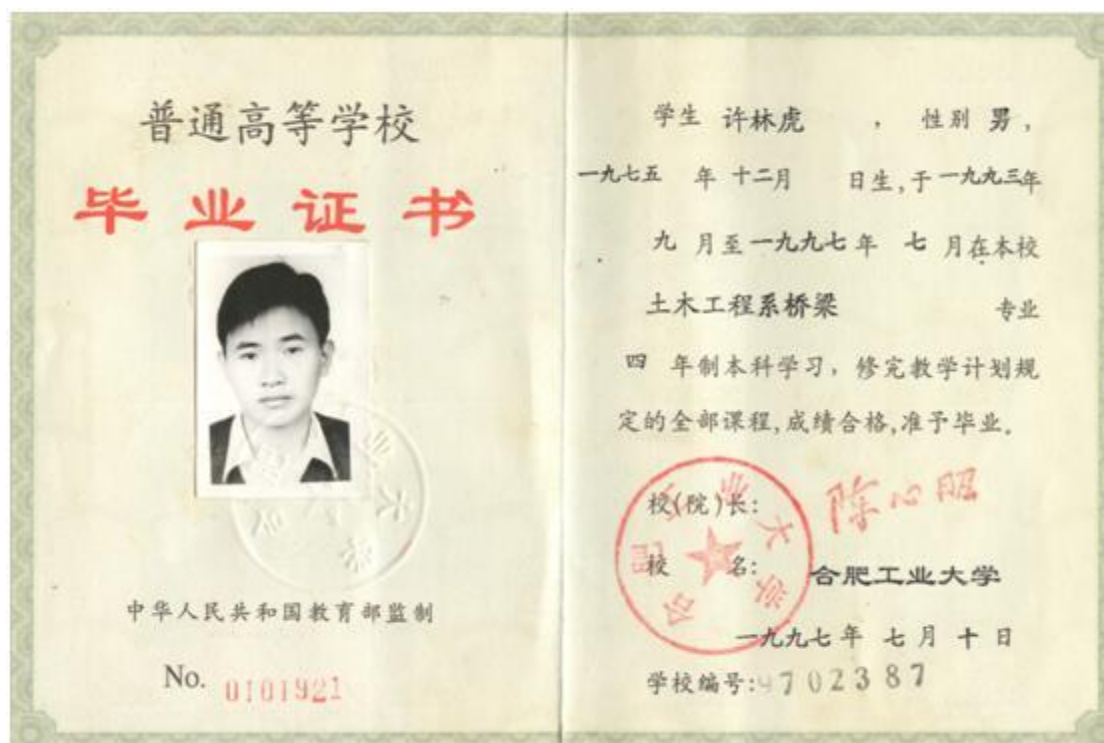 普通高等学校
毕业证书
中华人民共和国教育部监制
No. 0101921
学生 许林虎 , 性别 男,
一九七五 年 十二月 日生,于一九九三年
九 月至一九九七年 七 月在本校
土木工程系桥梁 专业
四 年制本科学习, 修完教学计划规
定的全部课程,成绩合格,准予毕业。
校(院)长: 陈心昭
校 名: 合肥工业大学
合肥工业大学
一九九七年 七月十日
学校编号:9702387